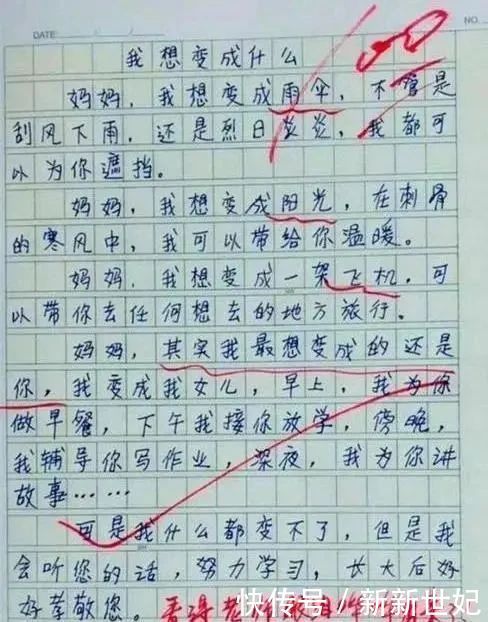 DATE:
NO.
我想变成什么
妈妈，我想变成雨伞，不管是
刮风下雨，还是烈日炎炎，我都可
以为你遮挡。
妈妈，我想变成阳光，在刺骨
的寒风中，我可以带给你温暖。
妈妈，我想变成一架飞机，可
以带你去任何想去的地方旅行。
妈妈，其实我最想变成的还是
你，我变成我女儿，早上，我为你
做早餐，下午我接你放学，傍晚，
我辅导你写作业，深夜，我为你讲
故事……
可是我什么都变不了，但是我
会听您的话，努力学习，长大后好
好孝敬您。
快传号/新新世妃